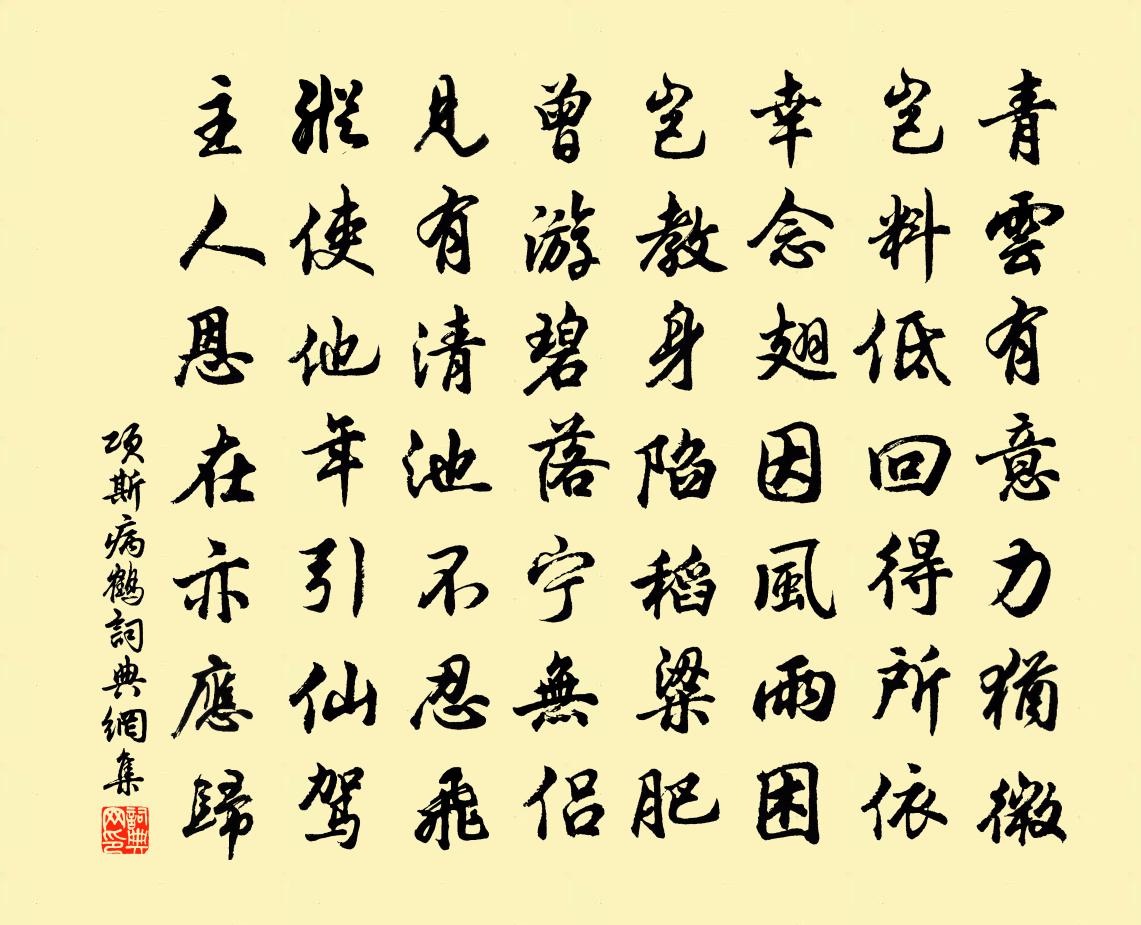 青雲有意力猶微
豈料低回得所依
幸念翅因風雨困
豈教身陷稻粱肥
曾游碧落宁無侣
見有清池不忍飛
縱使他年引仙駕
主人恩在亦應歸
項斯病鶴詞典網集
詞典网印